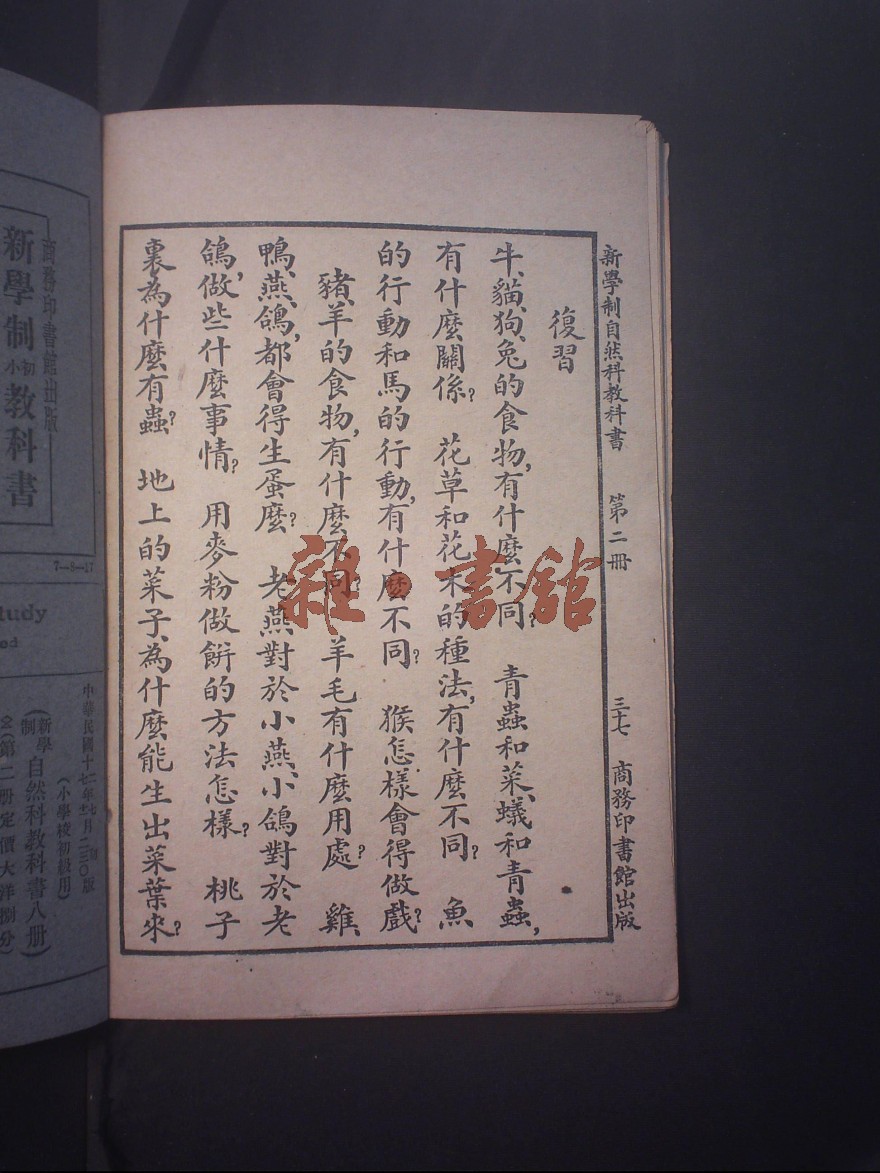 新學制自然科教科書 第二冊 三十七 商務印書館出版
復習
牛、貓、狗、兔的食物,有什麼不同? 青蟲和菜、蟻和青蟲,
有什麼關係? 花草和花木的種法,有什麼不同? 魚
的行動和馬的行動,有什麼不同? 猴怎樣會得做戲?
豬、羊的食物,有什麼不同? 羊毛有什麼用處? 雞、
鴨、燕、鴿,都會得生蛋麼? 老燕對於小燕、小鴿對於老
鴿,做些什麼事情? 用麥粉做餅的方法怎樣? 桃子
裏為什麼有蟲? 地上的菜子,為什麼能生出菜葉來?
雜·書館
商務印書館出版
新學制初小教科書
7—8—17
(小學校初級用)
新學制自然科教科書八册)
第二册定價大洋捌分)